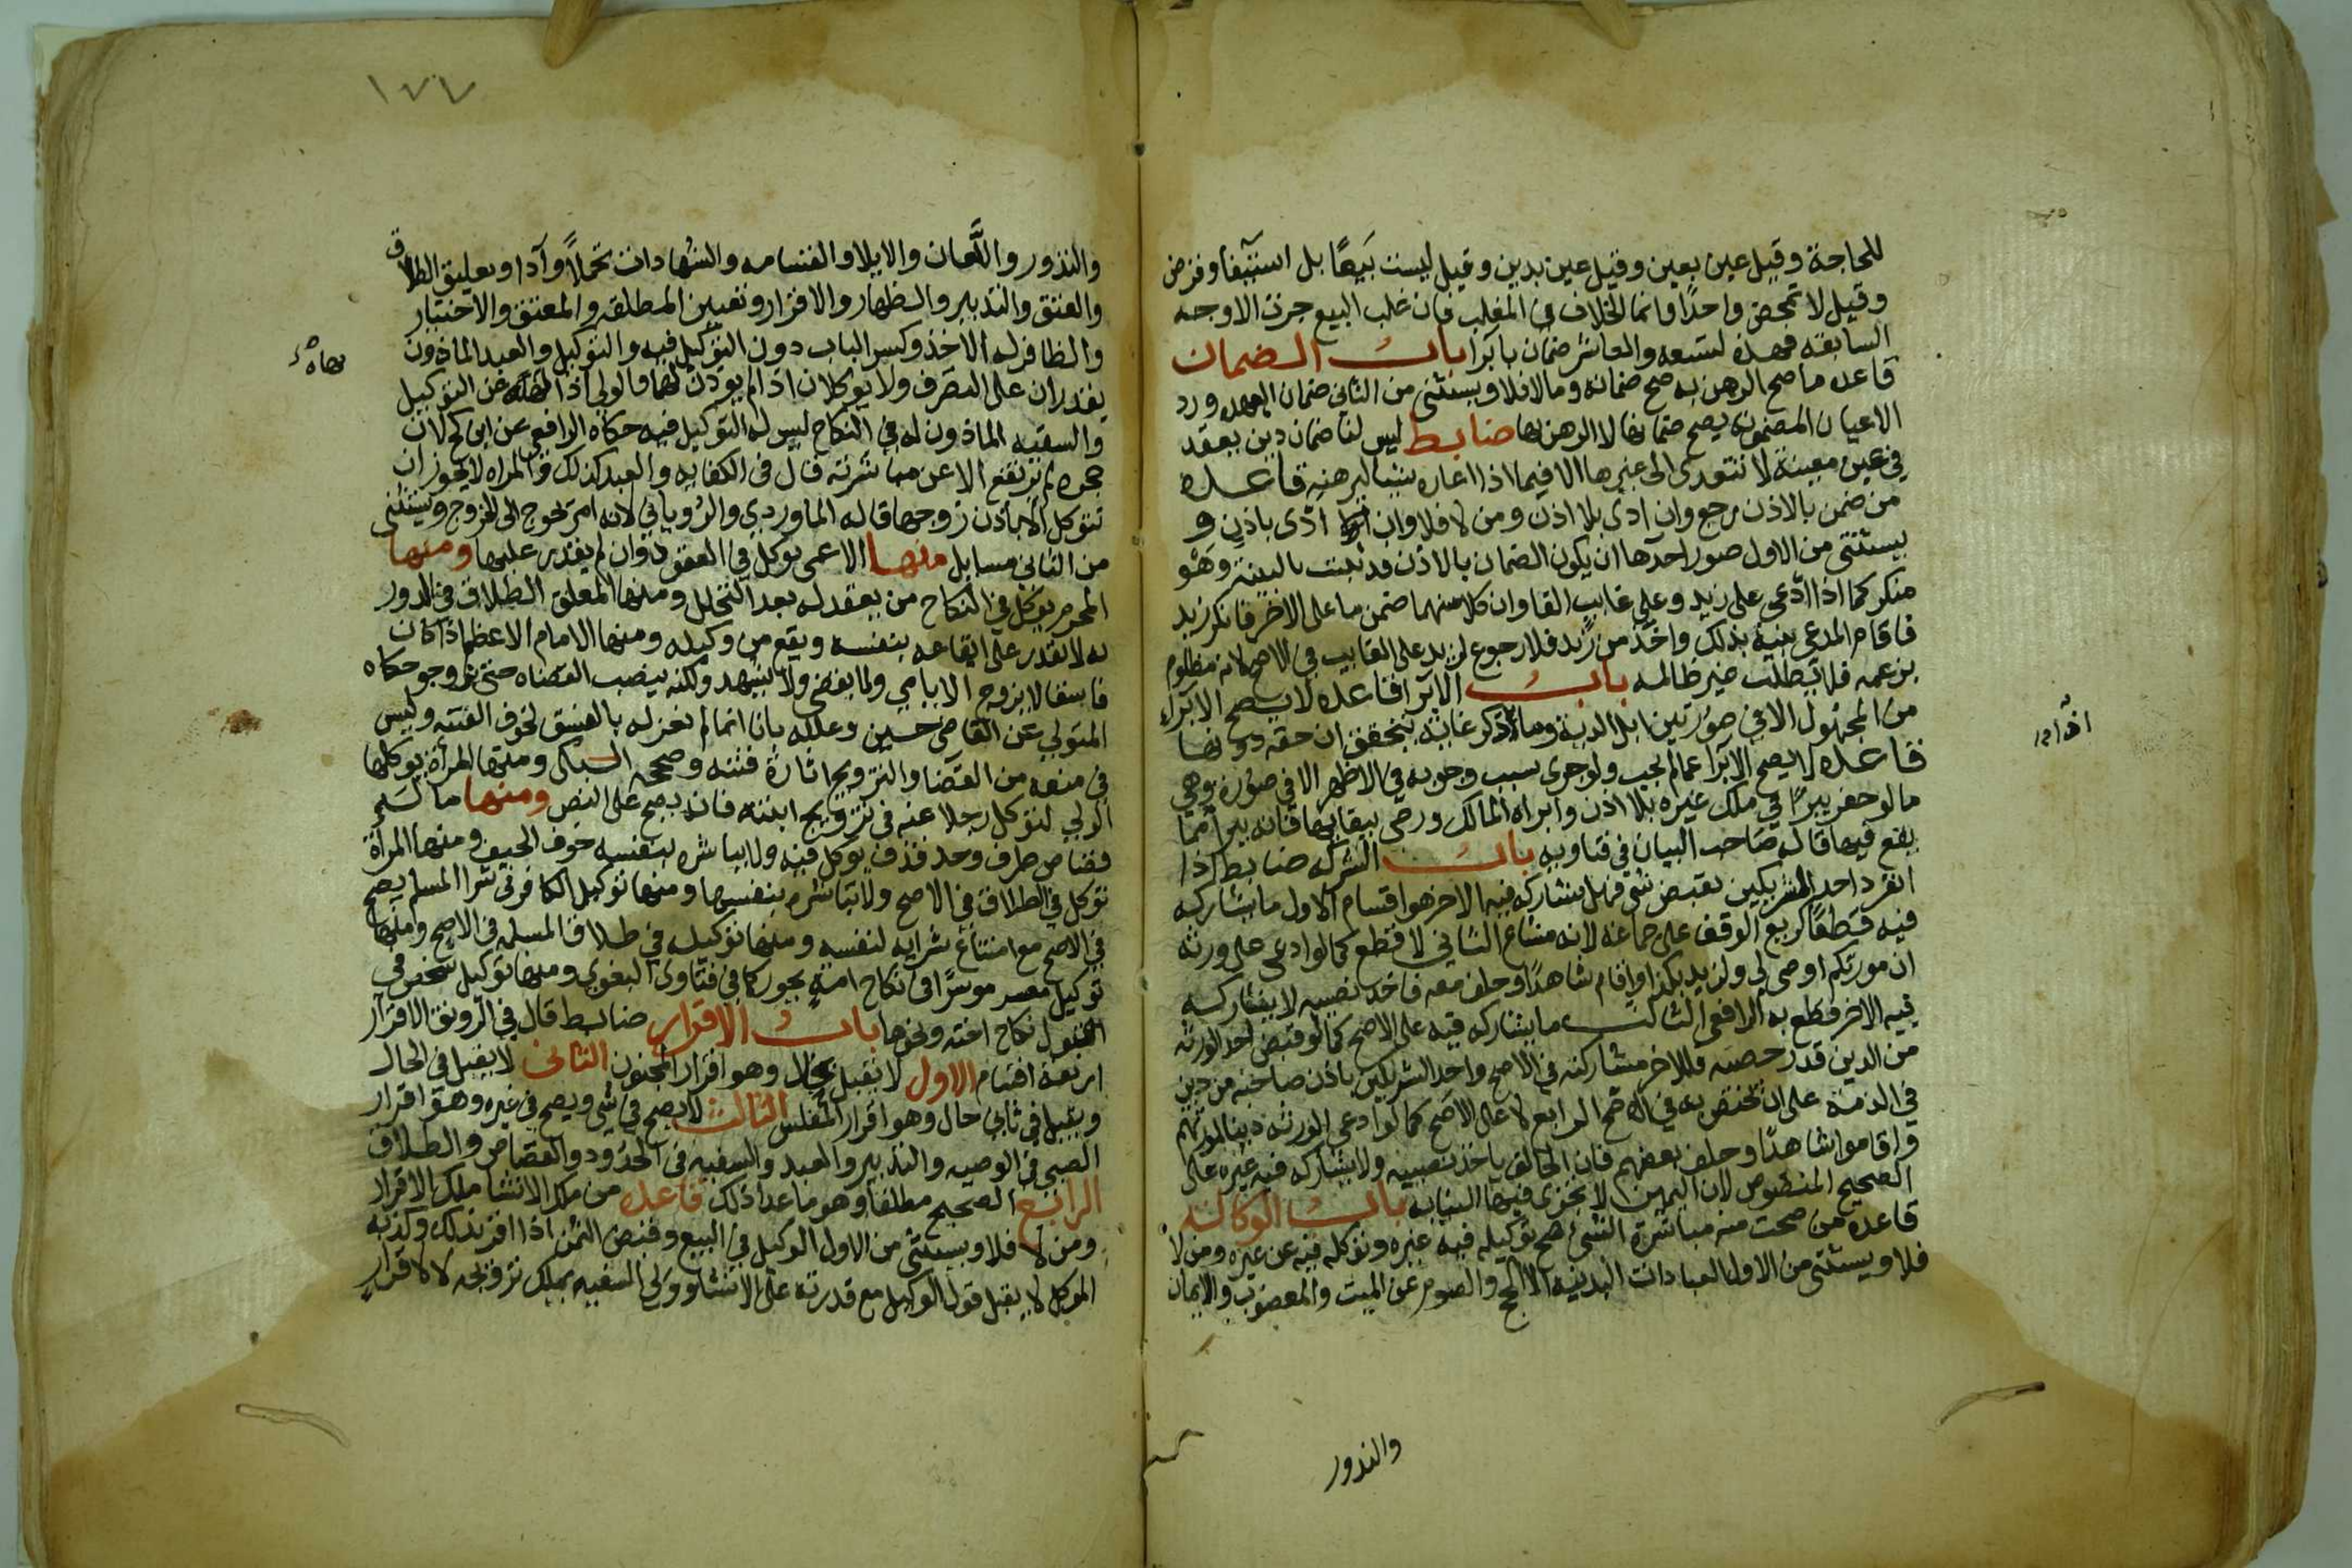 للحاجة وقيل عين بعين وقيل عين بدين وقيل ليست بيعًا بل استيفا وقرض
وقيل لا تمحض واحدًا وانما الخلاف في المغلب فان غلب البيع جرت الاوجه
السابقه فهذه تسعه والعاشر ضمان بابرا باب الضمان
قاعده ما صح الرهن به صح ضمانه وما لا فلا ويستثنى من الثاني ضمان العهده ورد
الاعيان المضمونه يصح ضمانها لا الرهن بها ضابط ليس لنا ضمان دين بعقد
في عين معينة لا تتعدى الى غيرها الا فيما اذا اعاره شيا ليرهنه قاعده
من ضمن بالاذن رجع وان ادى بلا اذن ومن لا فلا وان ادّى باذن و
يستثنى من الاول صور احدها ان يكون الضمان بالاذن قد ثبت بالبينة وهو
منكر كما اذا ادّعى على زيد وعلى غايب الفا وان كلا منهما ضمن ما على الاخر فانكر زيد
فاقام المدعي بينة بذلك واخذ من زيد فلا رجوع لزيد على الغايب في الاصح لانه مظلوم
بزعمه فلا يطالب غير ظالمه باب الابرا قاعده لا يصح الابراء
من المجهول الا في صورتين ابل الدية وما اذا ذكر غاية يتحقق ان حقه دونها
قاعده لا يصح الابرا عما لم يجب ولو جرى سبب وجوبه في الاظهر الا في صورة وهي
ما لو حفر بيرًا في ملك غيره بلا اذن وابراه المالك ورضي ببقايها فانه يبرا مما
يقع فيها قاله صاحب البيان في فتاويه باب الشركه ضابط اذا
انفرد احد الشريكين بقبض شي فهل يشاركه فيه الاخر هو اقسام الاول ما يشاركه
فيه قطعًا كريع الوقف على جماعه لانه مشاع الثاني لا قطع كما لو ادعى على ورثه
ان مورثكم اوصى لي ولزيد بكذا واقام شاهدًا وحلف معه فاخذ نصيبه لا يشاركه
فيه الاخر قطع به الرافعي الثالث ما يشاركه فيه على الاصح كما لو قبض احد الورثه
من الدين قدر حصته فللاخر مشاركته في الاصح واحد الشريكين باذن صاحبه من دين
في الذمة على ان تختص به في الاصح الرابع لا على الاصح كما لو ادعى الورثه دينا لمورثهم
واقاموا شاهدًا وحلف بعضهم فان الحالف ياخذ نصيبه ولا يشاركه فيه غيره على
الصحيح المنصوص لان اليمين لا يجزي فيها النيابه باب الوكاله
قاعده من صحت منه مباشرة الشئ صح توكيله فيه غيره وتوكله فيه عن غيره ومن لا
فلا ويستثنى من الاول العبادات البدنيه الا الحج والصوم عن الميت والمعضوب والايمان
والنذور
١٧٧
والنذور واللّعان والايلا والقسامه والشهادات تحملًا وآدا وتعليق الطلاق
والعتق والتدبير والظهار والاقرار وتعيين المطلقه والمعتق والاختيار
والظافر له الاخذ وكسر الباب دون التوكيل فيه والتوكيل والعبد الماذون
يقدران على التصرف ولا يوكلان اذا لم يوذن لهما والولي اذا نهته عن التوكيل
والسفيه الماذون له في النكاح ليس له التوكيل فيه حكاه الرافعي عن ابن كج لان
حجره لم يرتفع الا عن مباشرته قال في الكفايه والعبد كذلك والمراه لا يجوز ان
تتوكل الا باذن زوجها قاله الماوردي والروياني لانه امر يحوج الى الخروج ويستثنى
من الثاني مسايل منها الاعمى يوكل في العقود وان لم يقدر عليها ومنها
المحرم يوكل في النكاح من يعقد له بعد التحلل ومنها المعلق الطلاق في الدور
له لا يقدر على ايقاعه بنفسه ويقع من وكيله ومنها الامام الاعظم اذا كان
فاسقا لا يزوج الايامي ولا يقضي ولا يشهد ولكنه ينصب القضاه حتى يزوجو حكاه
المتولي عن القاضي حسين وعلله بانا انما لم نعزله بالفسق لخوف الفتنه وليس
في منعه من القضا والتزويج اثارة فتنه وصححه السبكي ومنها المرأة يوكلها
الولي لتوكل رجلا عنه في تزويج ابنته فانه يصح على النص ومنها ما لسلم
قصاص طرف وحد قذف يوكل فيه ولا يباشره بنفسه خوف الحيف ومنها المرأة
توكل في الطلاق في الاصح ولا تباشره بنفسها ومنها توكيل الكافر في شرا المسلم يصح
في الاصح مع امتناع شرايه لنفسه ومنها توكيله في طلاق المسلمه في الاصح ومنها
توكيل معسر موسرًا في نكاح امةٍ يجوز كما في فتاوى البغوي ومنها توكيل شخص في
القبول نكاح اخته ونحوها باب الاقرار ضابط قال في الرونق الاقرار
اربعة اقسام الاول لا يقبل بحال وهو اقرار المجنون الثاني لا يقبل في الحال
ويقبل في ثاني حال وهو اقرار المفلس الثالث لا يصح في شي ويصح في غيره وهو اقرار
الصبي في الوصيه والتدبير والعبد والسفيه في الحدود والقصاص والطلاق
الرابع الصحيح مطلقا وهو ما عدا ذلك قاعده من ملك الانشا ملك الاقرار
ومن لا فلا ويستثنى من الاول الوكيل في البيع وقبض الثمن اذا اقر بذلك وكذبه
الموكل لا يقبل قول الوكيل مع قدرته على الانشا وولي السفيه يملك تزويجه لا الاقرار